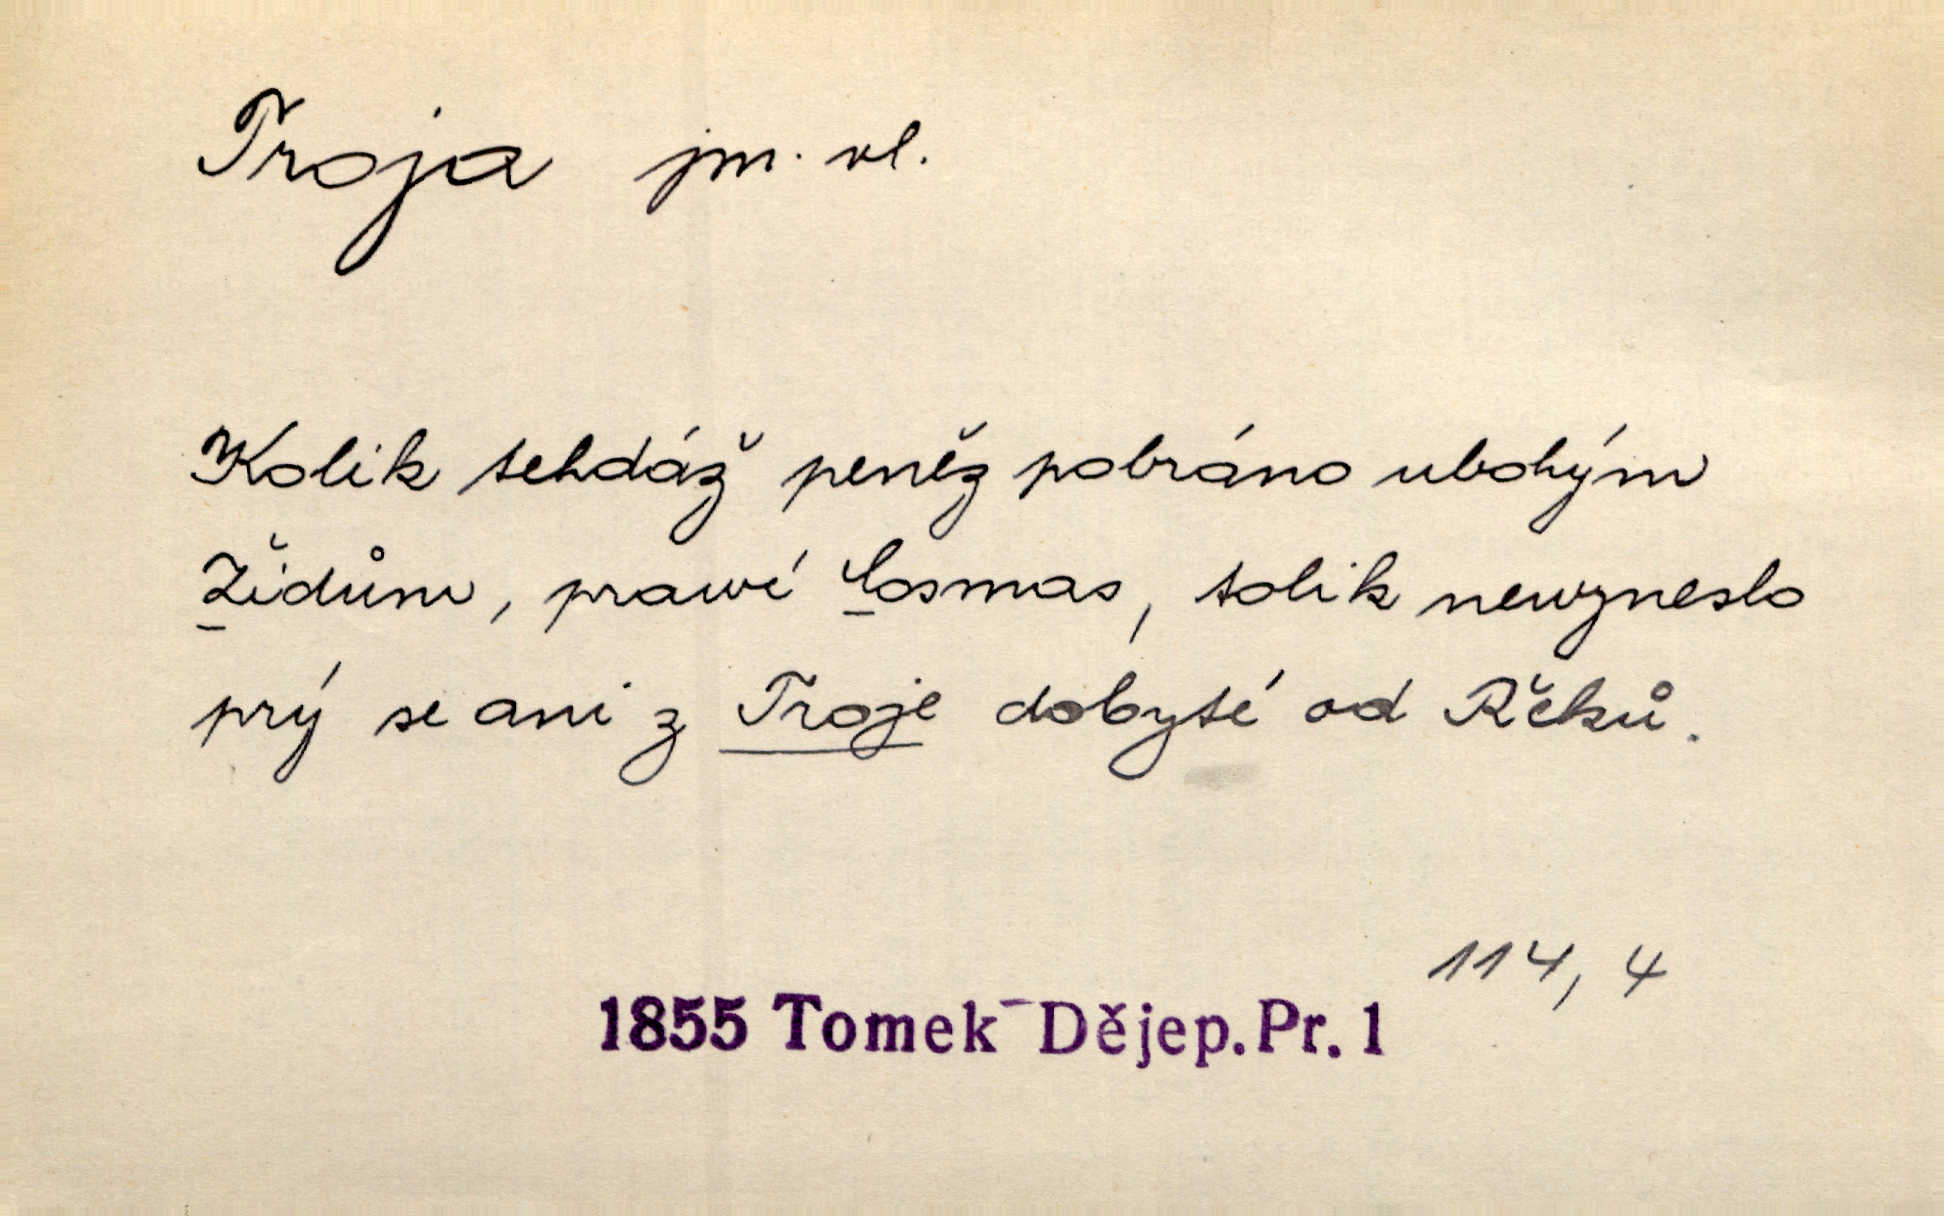 Troja jm. vl.
Kolik tehdáž peněz pobráno ubohým
Židům, prawí Cosmas, tolik newyneslo
prý se ani z Troje dobyté od Řěků.
114, 4
1855 Tomek Dějep. Pr. 1